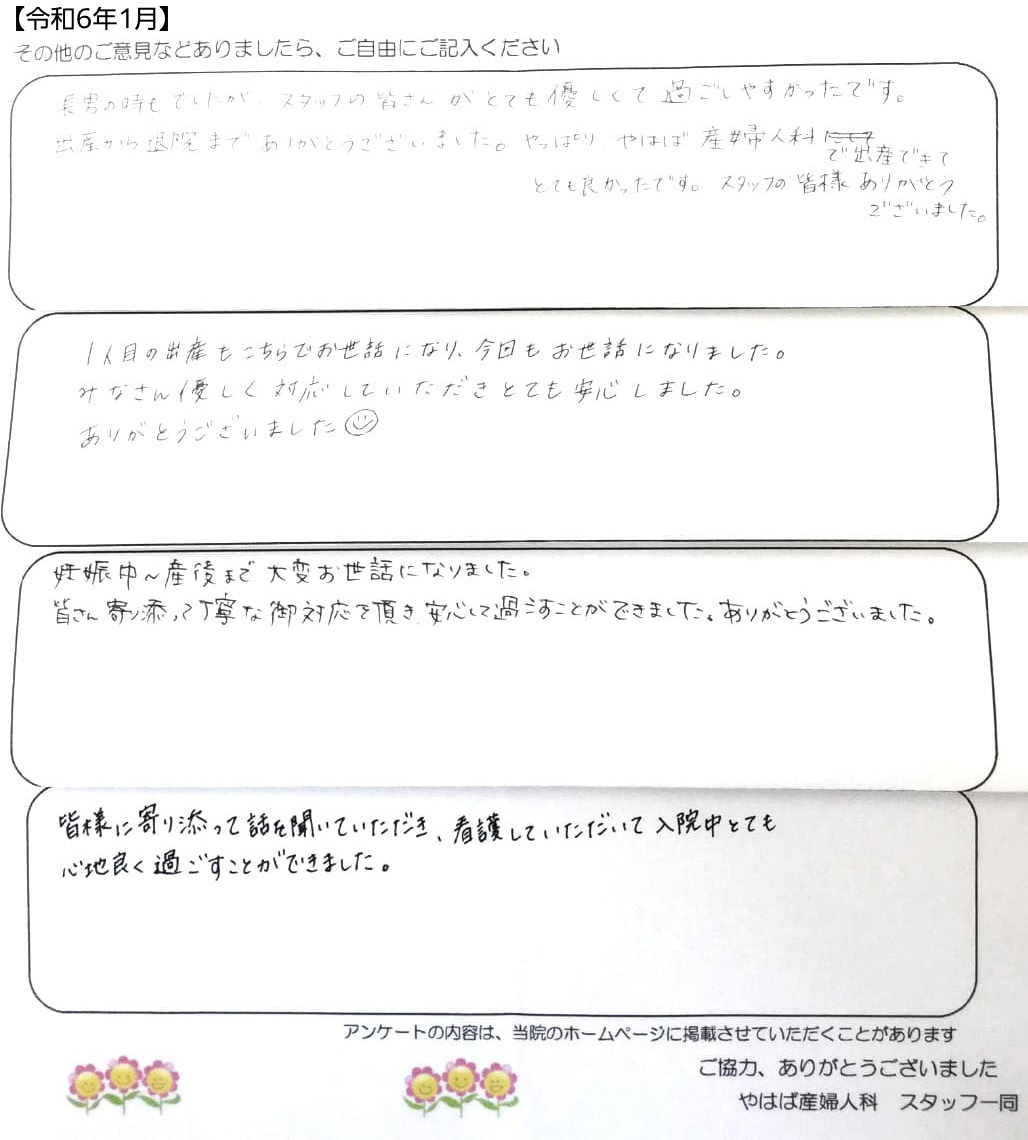 【令和6年1月】
その他のご意見などありましたら、ご自由にご記入ください
長男の時もでしたが、スタッフの皆さんがとても優しくて過ごしやすかったです。
出産から退院までありがとうございました。やっぱり、やはば産婦人科
で出産できて
とても良かったです。スタッフの皆様ありがとう
ございました。
1人目の出産もこちらでお世話になり、今回もお世話になりました。
みなさん優しく対応していただきとても安心しました。
ありがとうございました
妊娠中~産後まで大変お世話になりました。
皆さん寄り添って丁寧な御対応で頂き、安心して過ごすことができました。ありがとうございました。
皆様に寄り添って話を聞いていただき、看護していただいて入院中とても
心地良く過ごすことができました。
アンケートの内容は、当院のホームページに掲載させていただくことがあります
ご協力、ありがとうございました
やはば産婦人科 スタッフ一同